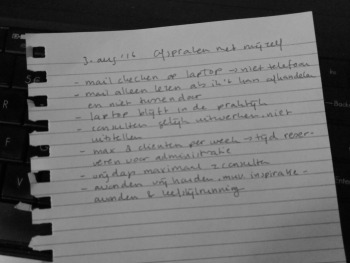 3. aug '16 Afspraken met mijzelf
- mail checken op laptop → niet telefoon
- mail alleen lezen als ik 't kan afhandelen
en niet tussendoor
- laptop blijft in de praktijk
- consulten gelijk uitwerken, niet
uitstellen
- max 8 cliënten per week → tijd reser-
veren voor administratie
- vrijdags maximaal 2 consulten
- avonden vrij houden, m.u.v. inspiratie-
avonden &